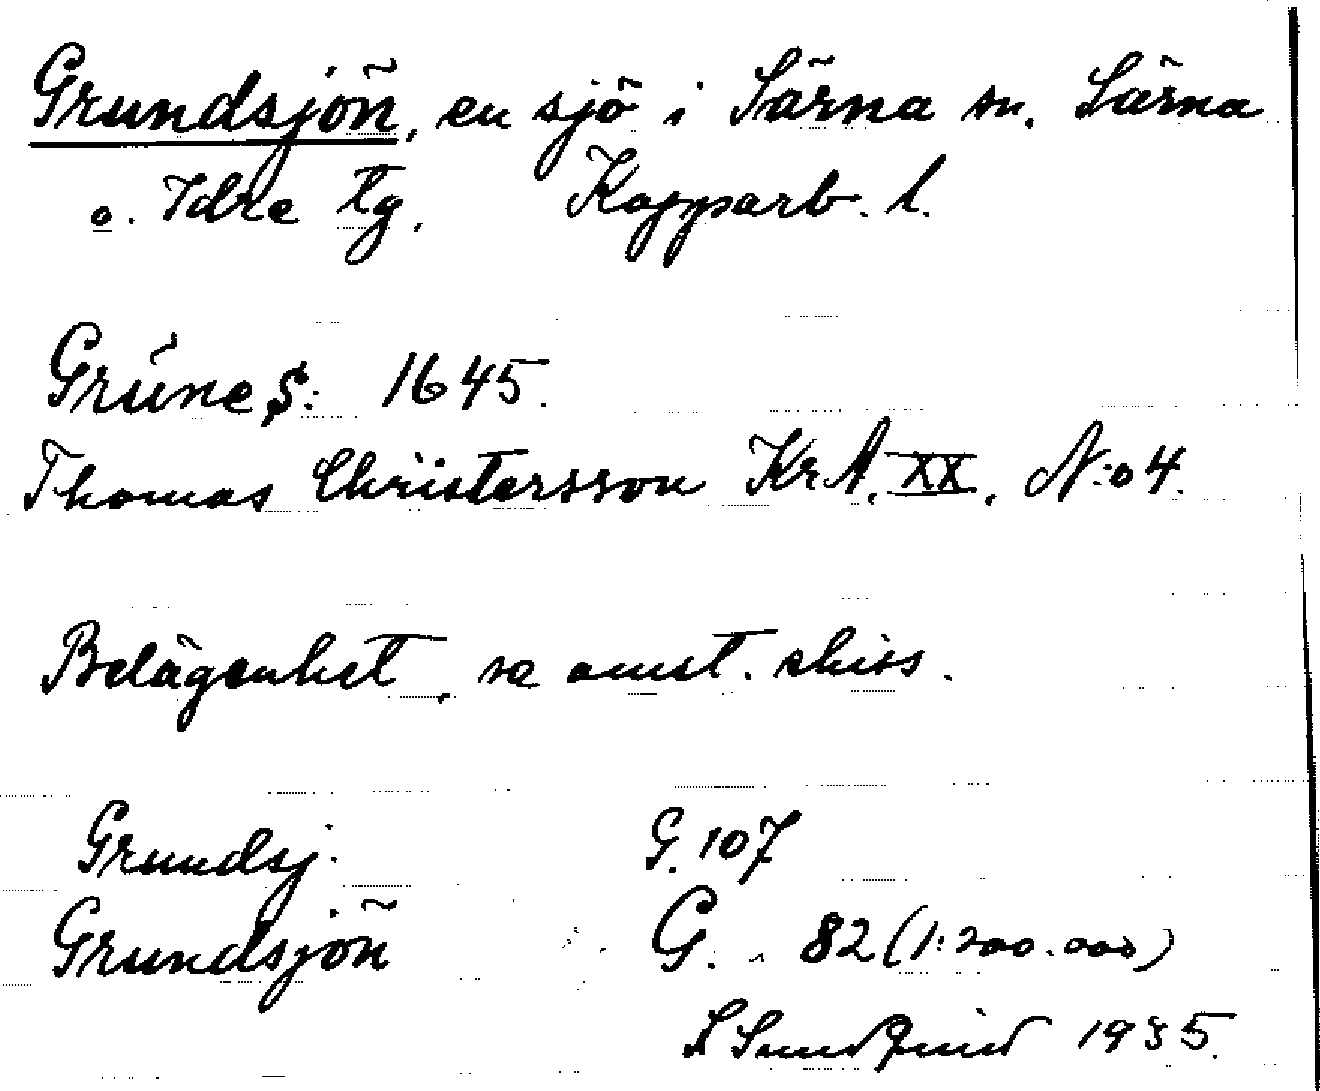 Grundsjön, en sjö i Särna sn. Särna
o. Idre tg. Kopparb. l.
Grúne ʃ: 1645.
Thomas Christersson Kr.A. XX. N:o 4.
Belägenhet, se amst. skiss.
Grundsj. G. 107
Grundsjön G. 82 (1:200.000)
S Sundqvist 1935.